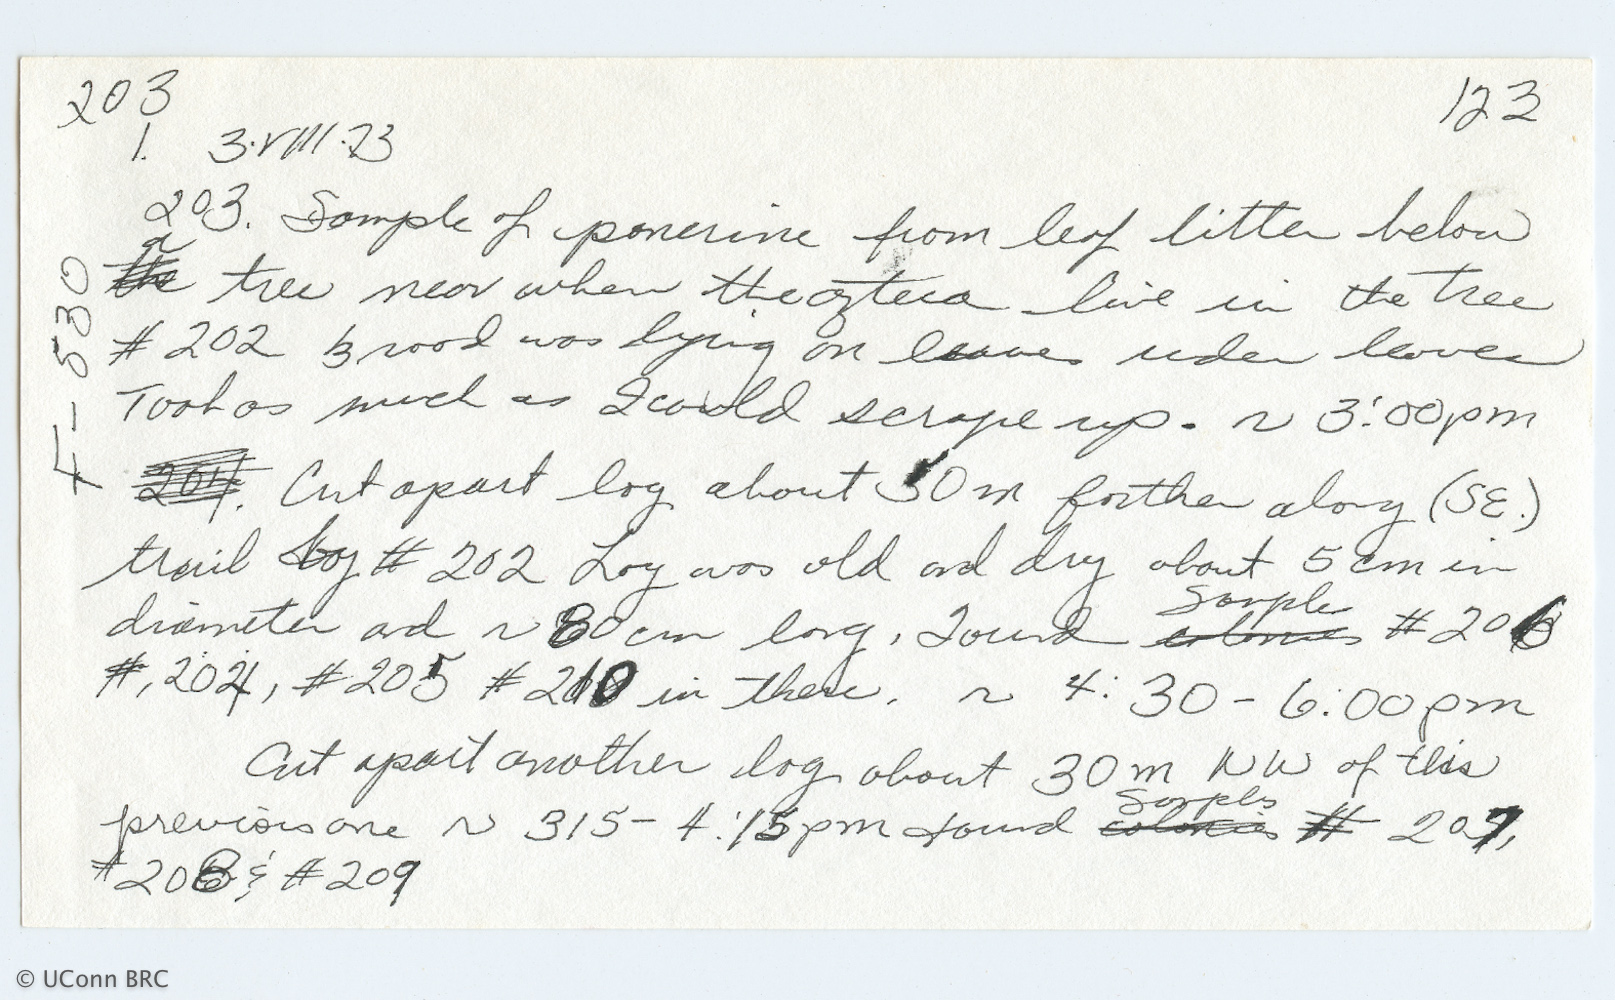 203 123
1. 3·VIII·73
203. Sample of ponerine from leaf litter below
a
the tree near when the azteca live in the tree
# 202 brood was lying on leaves uder leaves
Took as much as I could scrape up. ~ 3:00pm
204. Cut apart log about 30m forther along (SE.)
trail by # 202 Log was old and dry about 5cm in
diameter and ~ 80cm long. Found colonies Sample # 206
#, 204, # 205 # 210 in there. ~ 4:30 - 6:00pm
Cut apart another log about 30m NW of this
previous one ~ 315 - 4:15pm found colonies Sampls # 207,
# 208 & # 209
F-530
© UConn BRC